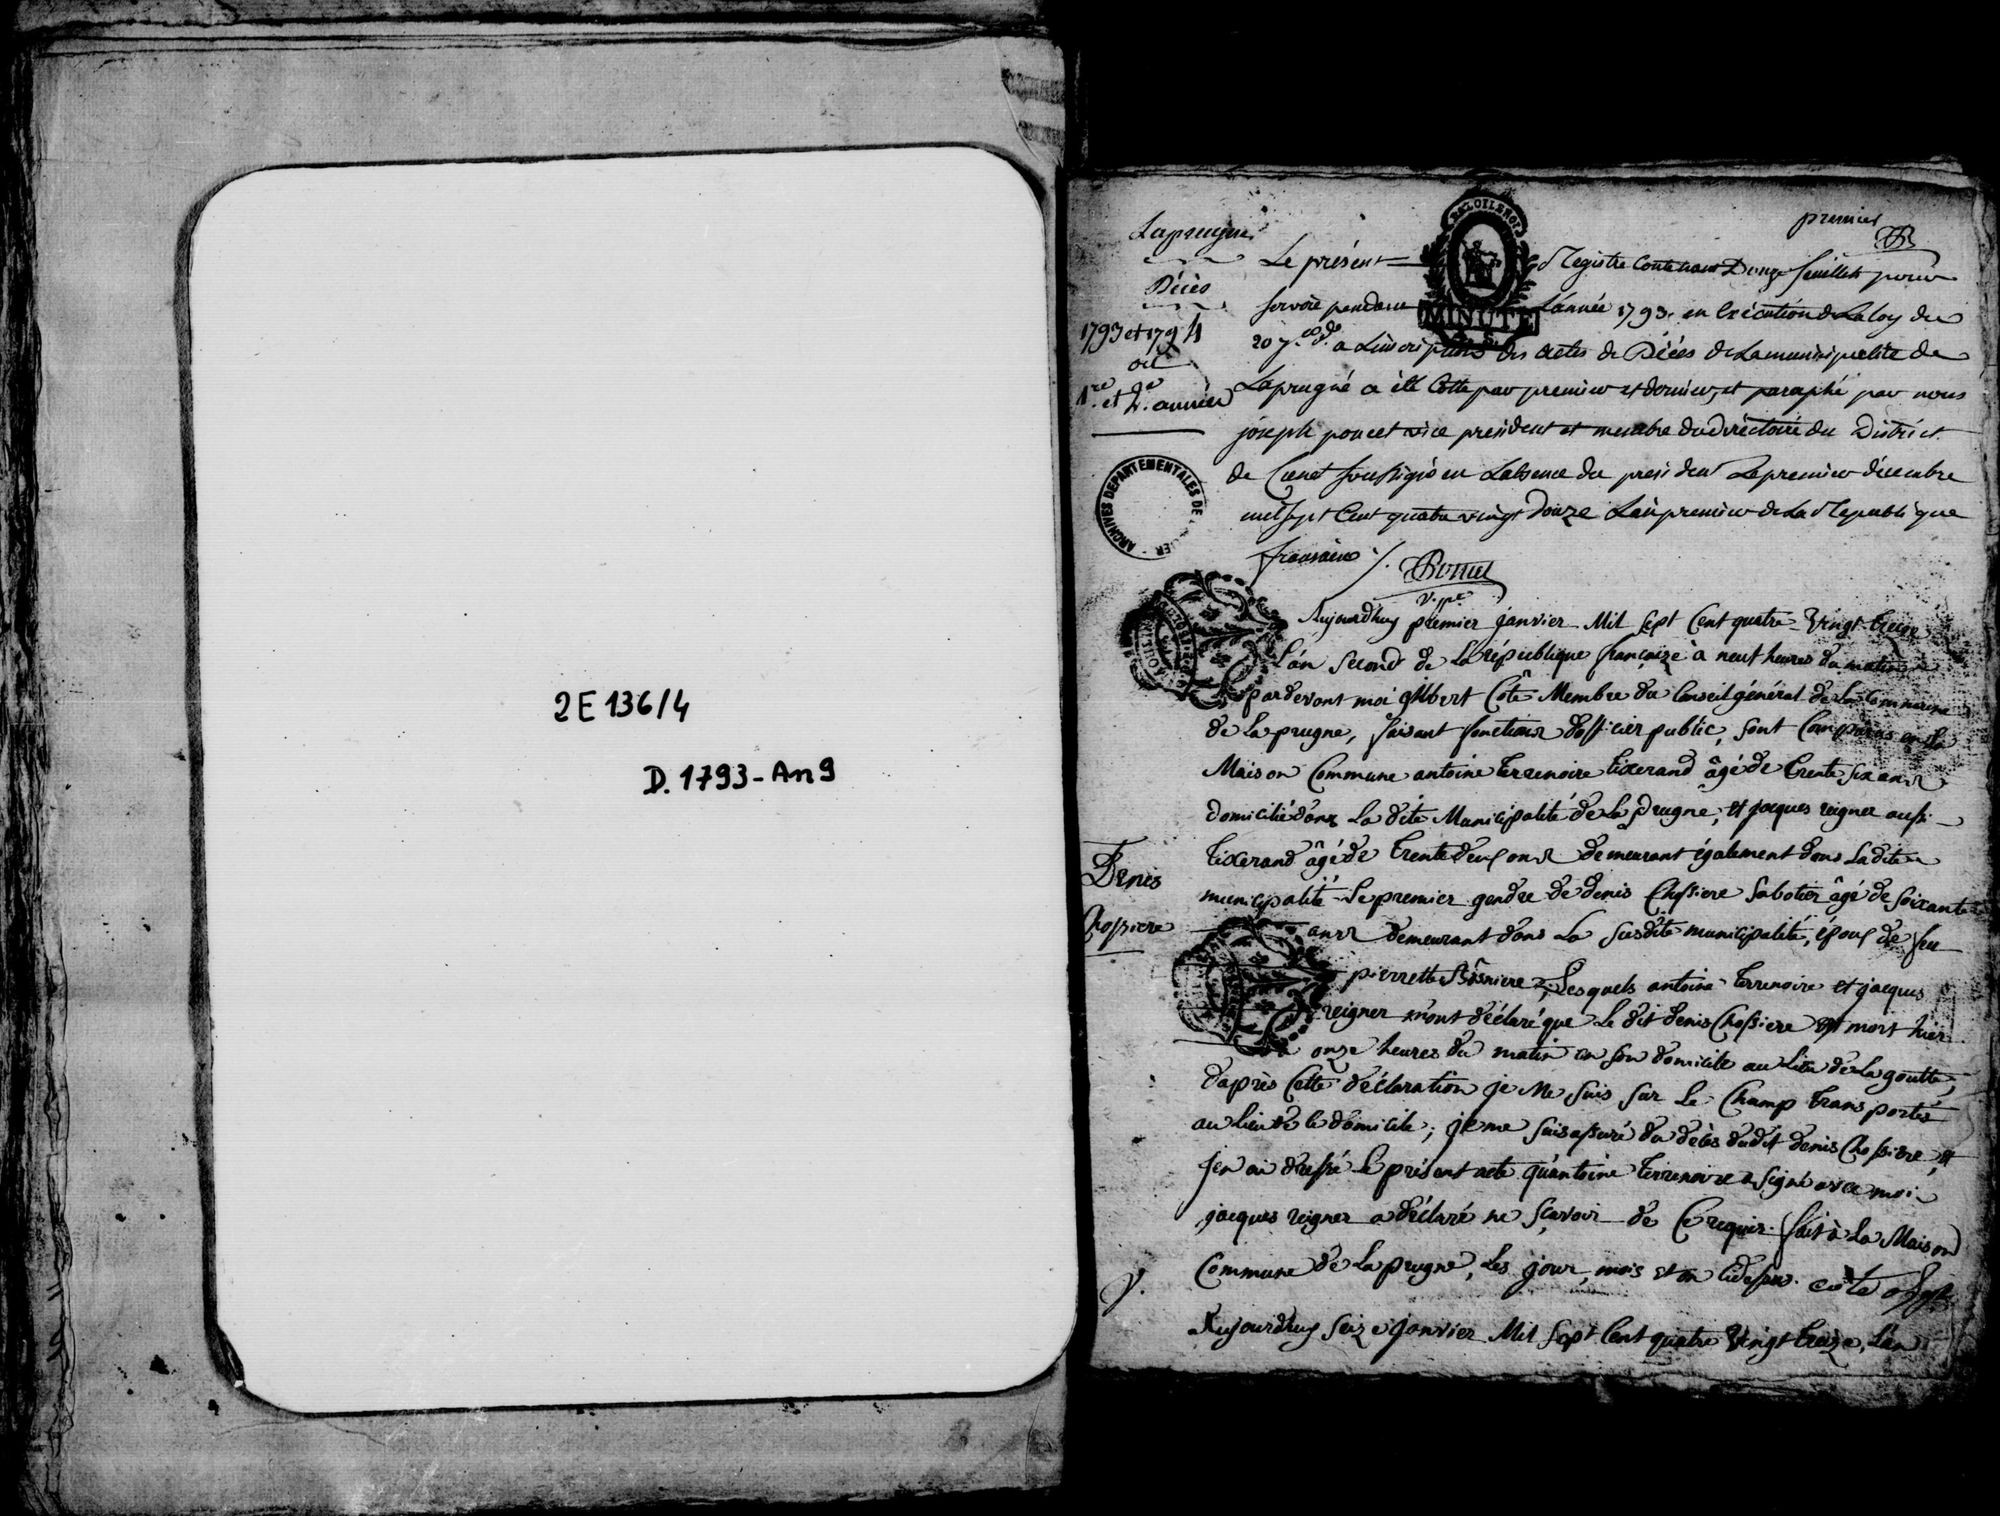 2E 136/4
D. 1793-An 9
premier
Laprugne
Décès
1793 et 1794
ou
1re et 2e année
MINUTE
ARCHIVES DEPARTEMENTALES DE L'ALLIER
Le présent Registre contenant Douze feuillets pour
servir pendant L'année 1793. en Exécution de La loy du
20 7.bre d.r a Linscription des actes de Décès de La municipalité de
Laprugne a été Cotté par premier et dernier, et paraphé par nous
joseph poncet vice president et membre du Directoire du District
de Cusset soussigné en Labsence du president Le premier décembre
mil sept Cent quatre vingt Douze L'an premier de La Republique
francaise ./. Poncet
v. pt
Aujourdhuy premier janvier Mil Sept Cent quatre Vingt treize
L'an Second de La république françaize à neuf heures du matin
pardevant moi gilbert Côte Membre du Conseil général de La Commune
de Laprugne, faisant fonctions d'officier public, sont Comparus en La
Maison Commune antoine terrenoire tixerand âgé de trente six ans
domicilié dans La dite Municipalité de La prugne, et jacques reigner aussi
tixerand âgé de trente deux ans demeurant également dans La dite
municipalité Le premier gendre de denis Chossiere Sabotier âgé de Soixante
ans demeurant dans La Susdite municipalité, époux de feu
Denis
Chossiere
pierrette ; Lesquels antoine terrenoire et jacques
reigner m'ont déclaré que Le dit denis Chossiere est mort hier
à onze heures du matin en son domicile au Lieu de La goutte,
d'après Cette déclaration je me suis sur Le Champ transporté
au Lieu de Ce domicile, je me suis assuré du décès dudit denis Chossiere, et
j'en ai dressé Le présent acte qu'antoine terrenoire a signé avec moi
jacques reigner a déclaré ne sçavoir de Ce requis. fait à La Maison
Commune de Laprugne, Les jour, mois et an cidessus. côte
Aujourdhuy Seize janvier Mil Sept Cent quatre Vingt treize, L'an